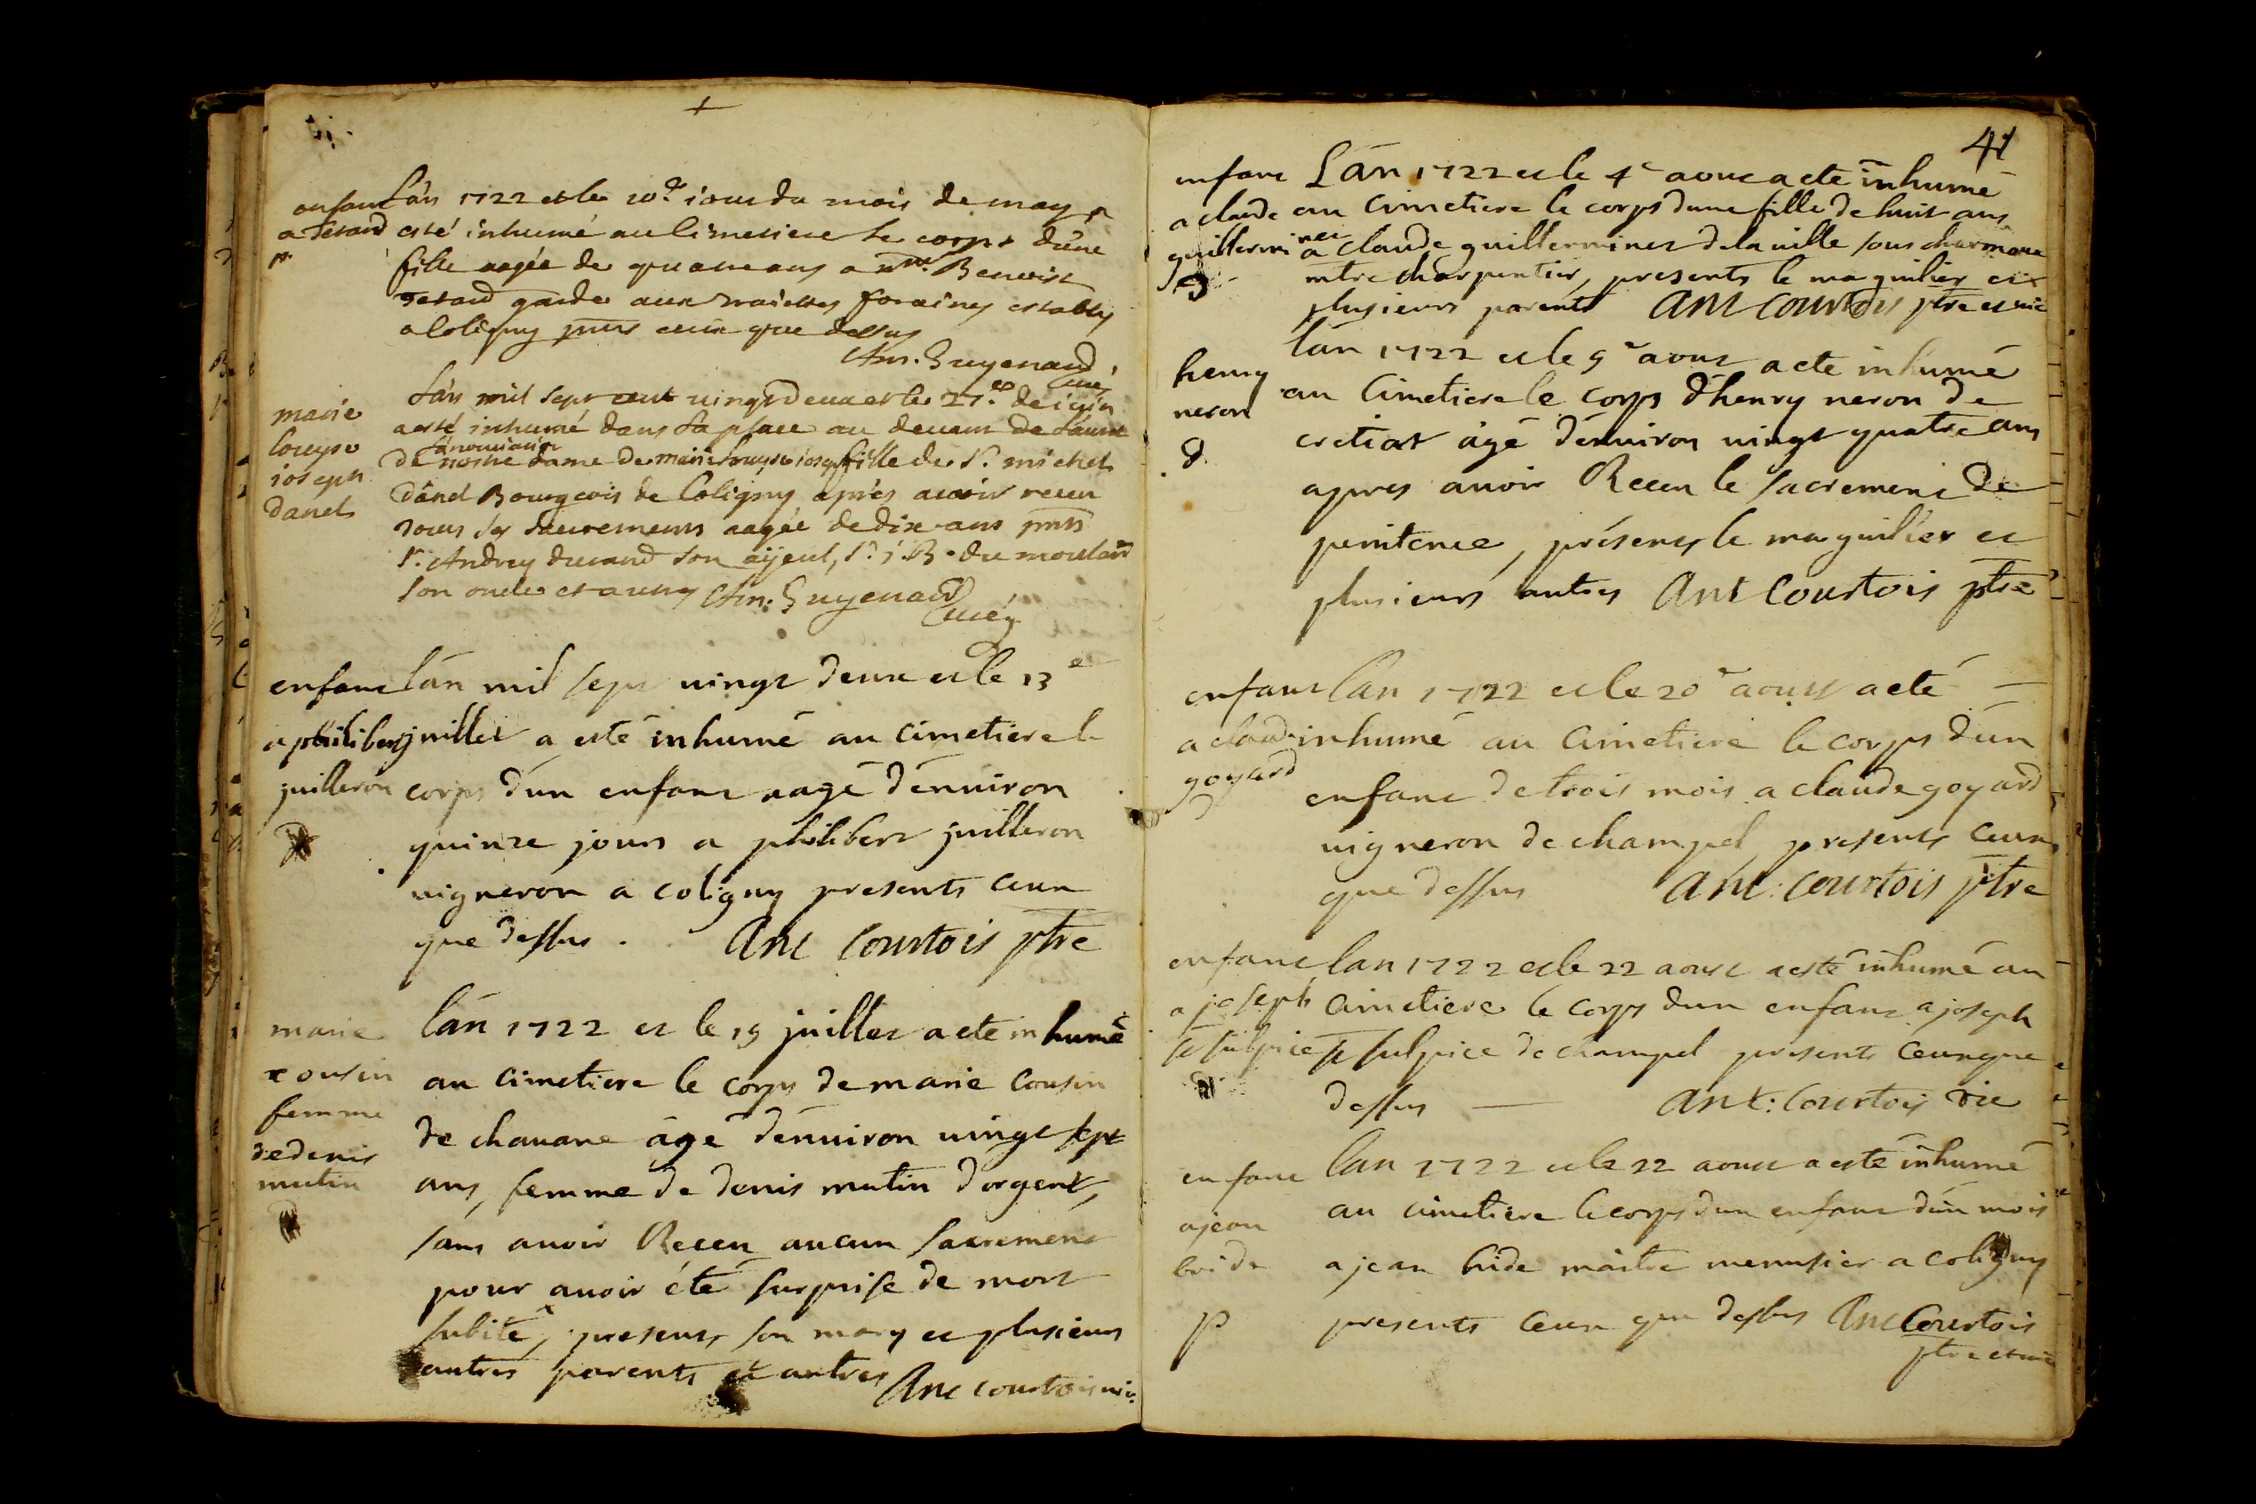 enfant
a Tetard
L'an 1722 et le 20.e iour du mois de may a
esté inhumé au Cimetiere le corps d'une
fille aagée de quatre ans a Benoist
Tetard garde aux traittes foraines establi
a Coligny pnts ceux que dessus
Ant. Guyenard
Curé
marie
louyse
ioseph
danel
L'an mil sept cent vingt deux et le 27.e de iuin
a esté inhumé dans la place au devant de l'autel
de nostre dame de marie louyse ioseph fille de Sr. michel
danel Bourgeois de Coligny apres avoir receu
tous ses sacrements aagée de dix ans pnts
Sr. Andrey durand son ayeul, Sr. J. B. du moulard
son oncle et autres Ant. Guyenard
Curé
enfant
a philibert
juilleron
l'an mil sept vingt deux et le 13e
juillet a esté inhumé au cimetiere le
corps d'un enfant aagé d'enuiron
quinze jours a philibert juilleron
uigneron a coligny presents ceux
que dessus. Ant Courtois ptre
marie
cousin
femme
de denis
mutin
l'an 1722 et le 15 juillet a eté inhumé
au cimetiere le corps de marie Cousin
de chauane âgé d'enuiron uingt sept
ans, femme de denis mutin dorgent,
sans auoir Receu aucun sacrement
pour auoir été surprise de mort
subite, presents son mary et plusieurs
autres parents et autres Ant courtois uic.
41
enfant
a claude
guillerminet
L'an 1722 et le 4e aout a eté inhumé
au Cimetiere le corps dune fille de huit ans
a claude guillerminet de la uille sous charmoux
mtre charpentier, presents le maguilier et
plusieurs parents Ant Courtois ptre et uic
henry
neron
l'an 1722 et le 9e aout a eté inhumé
au Cimetiere le corps d'henry neron de
cretiat âgé d'enuiron uingt quatre ans
apres auoir Receu le sacrement de
penitence, présents le maguilier et
plusieurs autres Ant Courtois ptre
enfant
a claude
goyard
lan 1722 et le 20e aoust a eté
inhumé au Cimetiere le corps d'un
enfant de trois mois a claude goyard
uigneron de champel, presents ceux
que dessus Ant: Courtois ptre
enfant
a joseph
st sulpice
lan 1722 et le 22 aoust a esté inhumé au
cimetiere le corps dun enfant a joseph
st sulpice de champel presents ceux que
dessus Ant: Courtois vic
enfant
a jean
bride
lan 1722 et le 22 aoust a esté inhumé
au cimetiere le corps dun enfant d'un mois
a jean bride maitre menusier a coligny
presents ceux que dessus Ant Courtois
ptre et uic